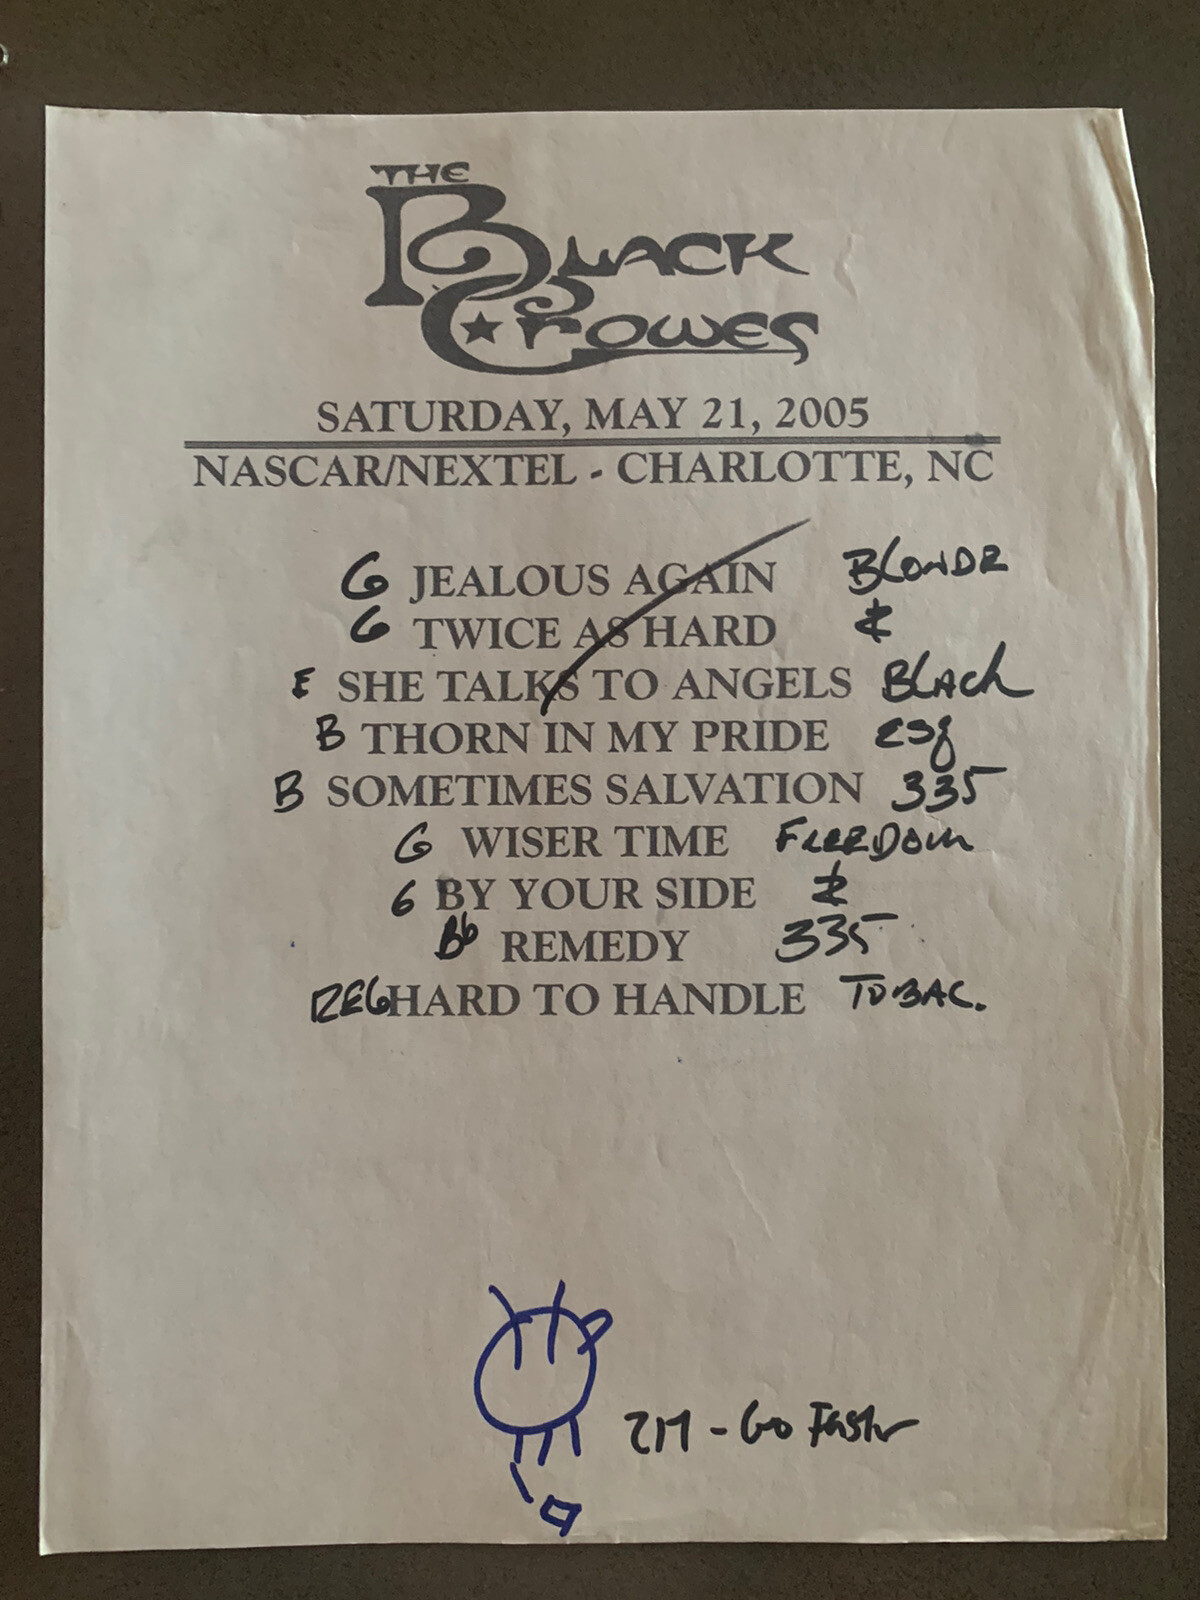 THE
BLACK
CROWES
SATURDAY, MAY 21, 2005
NASCAR/NEXTEL - CHARLOTTE, NC
G JEALOUS AGAIN BLONDE
G TWICE AS HARD
E SHE TALKS TO ANGELS BLACK
B THORN IN MY PRIDE ESQ
B SOMETIMES SALVATION 335
G WISER TIME FREEDOM
G BY YOUR SIDE
Bb REMEDY 335
REG HARD TO HANDLE TOBAC.
- Go Faster